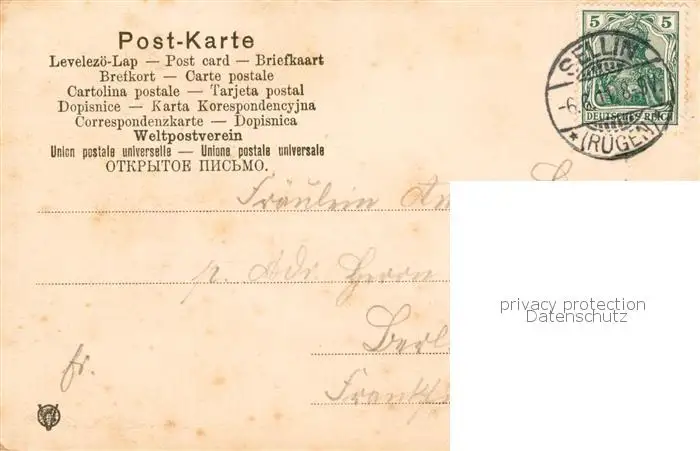 Post-Karte
Levelezö-Lap — Post card — Briefkaart
Brefkort — Carte postale
Cartolina postale — Tarjeta postal
Dopisnice — Karta Korespondencyjna
Correspondenzkarte — Dopisnica
Weltpostverein
Union postale universelle — Unione postale universale
ОТКРЫТОЕ ПИСЬМО.
5 5
DEUTSCHES REICH
SELLIN
(RÜGEN)
Fräulein
p. Adr. Herrn
Berl
Frankf
fr.
privacy protection
Datenschutz